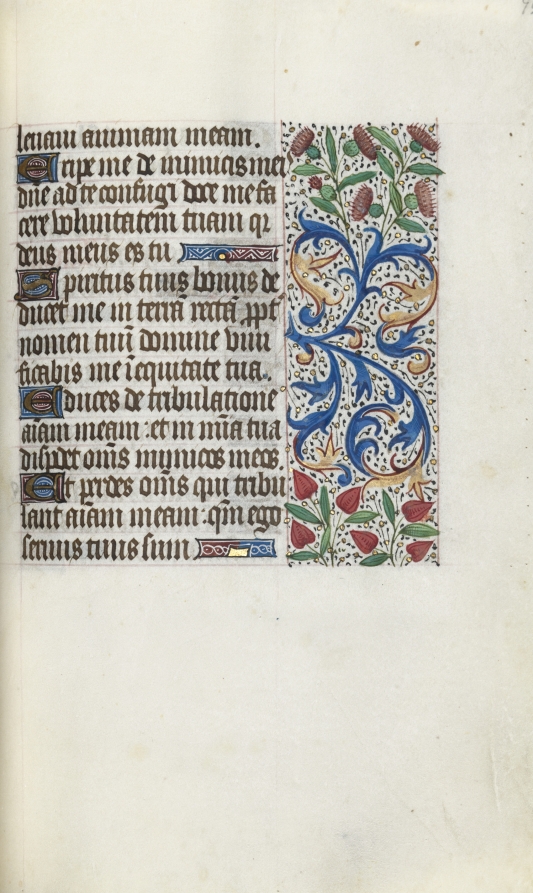 leuam animam meam.
Eripe me de inimicis meis
dñe ad te confugi doce me fa
cere voluntatem tuam qz
deus meus es tu
Spiritus tuus bonus de
ducet me in terrã rectã ppt
nomen tuũ domine viui
ficabis me ĩ equitate tua.
Educes de tribulatione
aĩam meam : et in mĩa tua
disꝑdet oñis inimicos meos.
Et ꝑdes oñis qui tribu
lant aĩam meam : qm̃ ego
seruus tuus sum